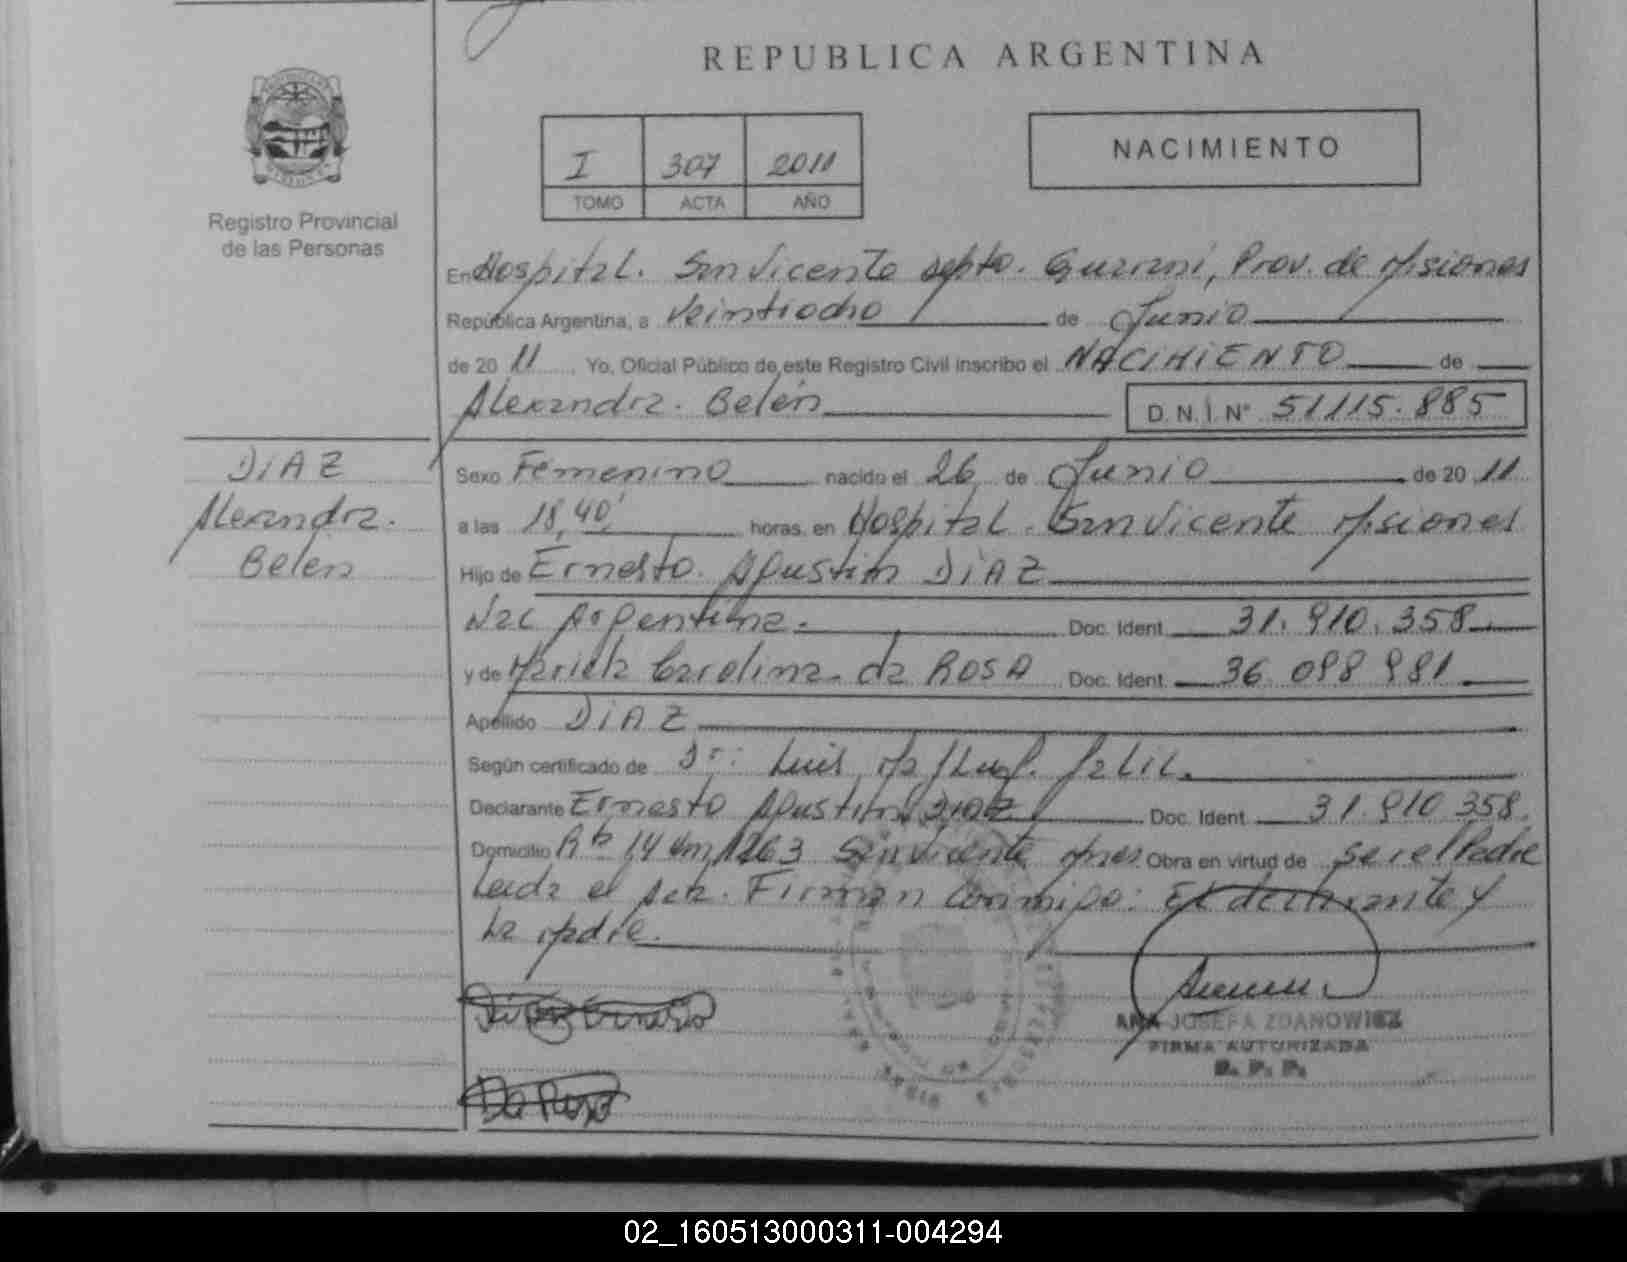 REPUBLICA ARGENTINA
I 307 2011
TOMO ACTA AÑO
NACIMIENTO
Registro Provincial
de las Personas
En Hospital. San Vicente Depto. Guaraní, Prov. de Misiones
República Argentina, a Veintiocho de Junio
de 20 11. Yo, Oficial Público de este Registro Civil inscribo el NACIMIENTO de
Alexandra. Belén D.N.I.N° 51115.885
DIAZ
Alexandra.
Belen
Sexo Femenino nacido el 26 de Junio de 20 11
a las 18,40 horas, en Hospital. San Vicente Misiones
Hijo de Ernesto. Agustin DIAZ
Nac Argentina. Doc. Ident. 31.910.358
y de Mariela Carolina. da ROSA Doc. Ident. 36 098 981
Apellido DIAZ
Según certificado de Dr: Luis
Declarante Ernesto Agustin DIAZ Doc. Ident. 31.910 358.
Domicilio 14 Km 1263 San Vicente Mnes. Obra en virtud de ser el Padre
Leida el Acta. Firman Conmigo: El declarante y
La Madre.
Diaz Ernesto
Da Rosa
ANA JOSEFA ZDANOWICZ
FIRMA AUTORIZADA
R. P. P.
02_160513000311-004294